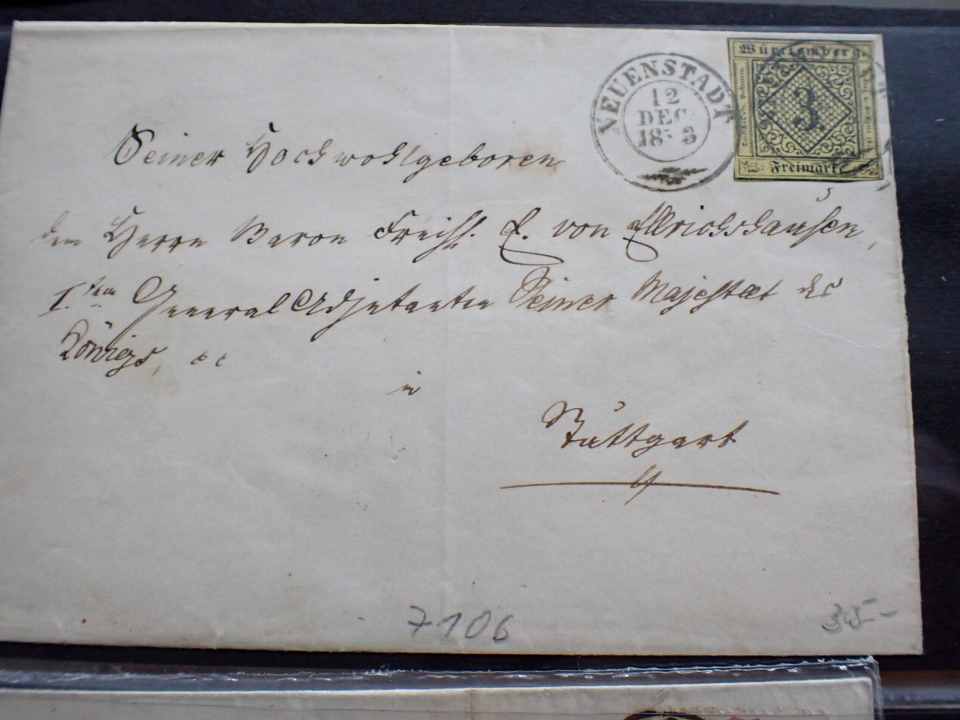 NEUENSTADT
12
DEC
1853
Württemberg.
3.
Freimarke
Seiner Hochwohlgeboren
dem Herrn Baron Freih. E. von Ellrichshausen,
I. General Adjutanten Seiner Majestæt des
Königs,
in
Stuttgart
7106